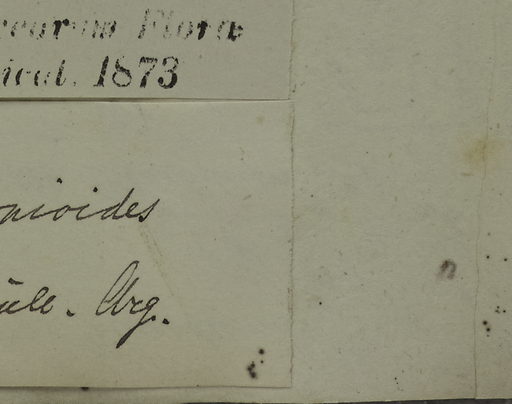 cearum Floræ
ical. 1873
nioides
üll. Arg.